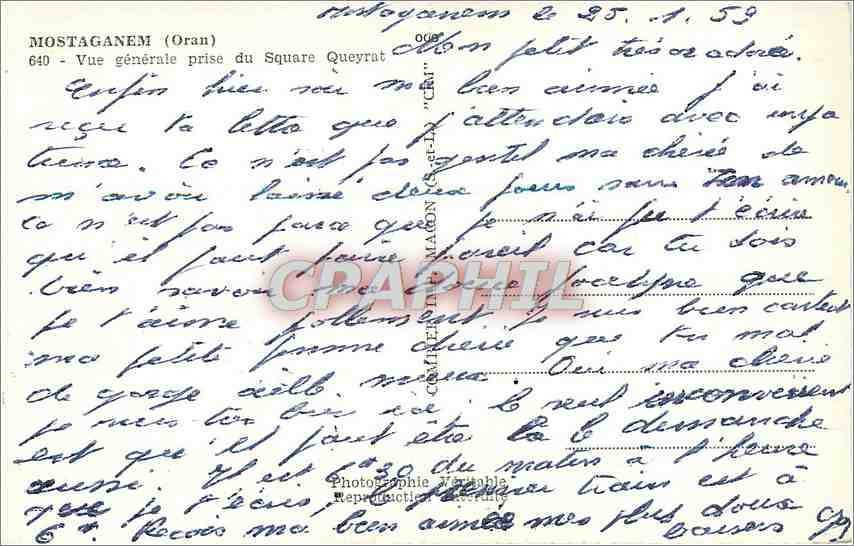 Mostaganem le 25. 1. 59
MOSTAGANEM (Oran)
640 - Vue générale prise du Square Queyrat
Mon petit trésor adoré.
Enfin hier soir ma bien aimée j'ai
reçu ta lettre que j'attendais avec impa
tience. Ce n'est pas gentil ma chérie de
m'avoir laissé deux jours sans ton amour
Ce n'est pas parce que je n'ai pu t'écrire
qu'il faut faire pareil car tu dois
bien savoir ma douce Jocelyne que
je t'aime follement je suis bien content
ma petite femme chérie que ton mal
de gorge aille mieux Oui ma chérie
je suis très bien ici. le seul inconvénient
est qu'il faut être là le dimanche
aussi. Il est 6h 30 du matin à l'heure
que je t'écris, le premier train est à
6h. Reçois ma bien aimée mes plus doux
baisers
COMBIER IMP. MACON (S.-et-L.) "CIM"
Photographie Véritable
Reproduction Interdite
CPAPHIL